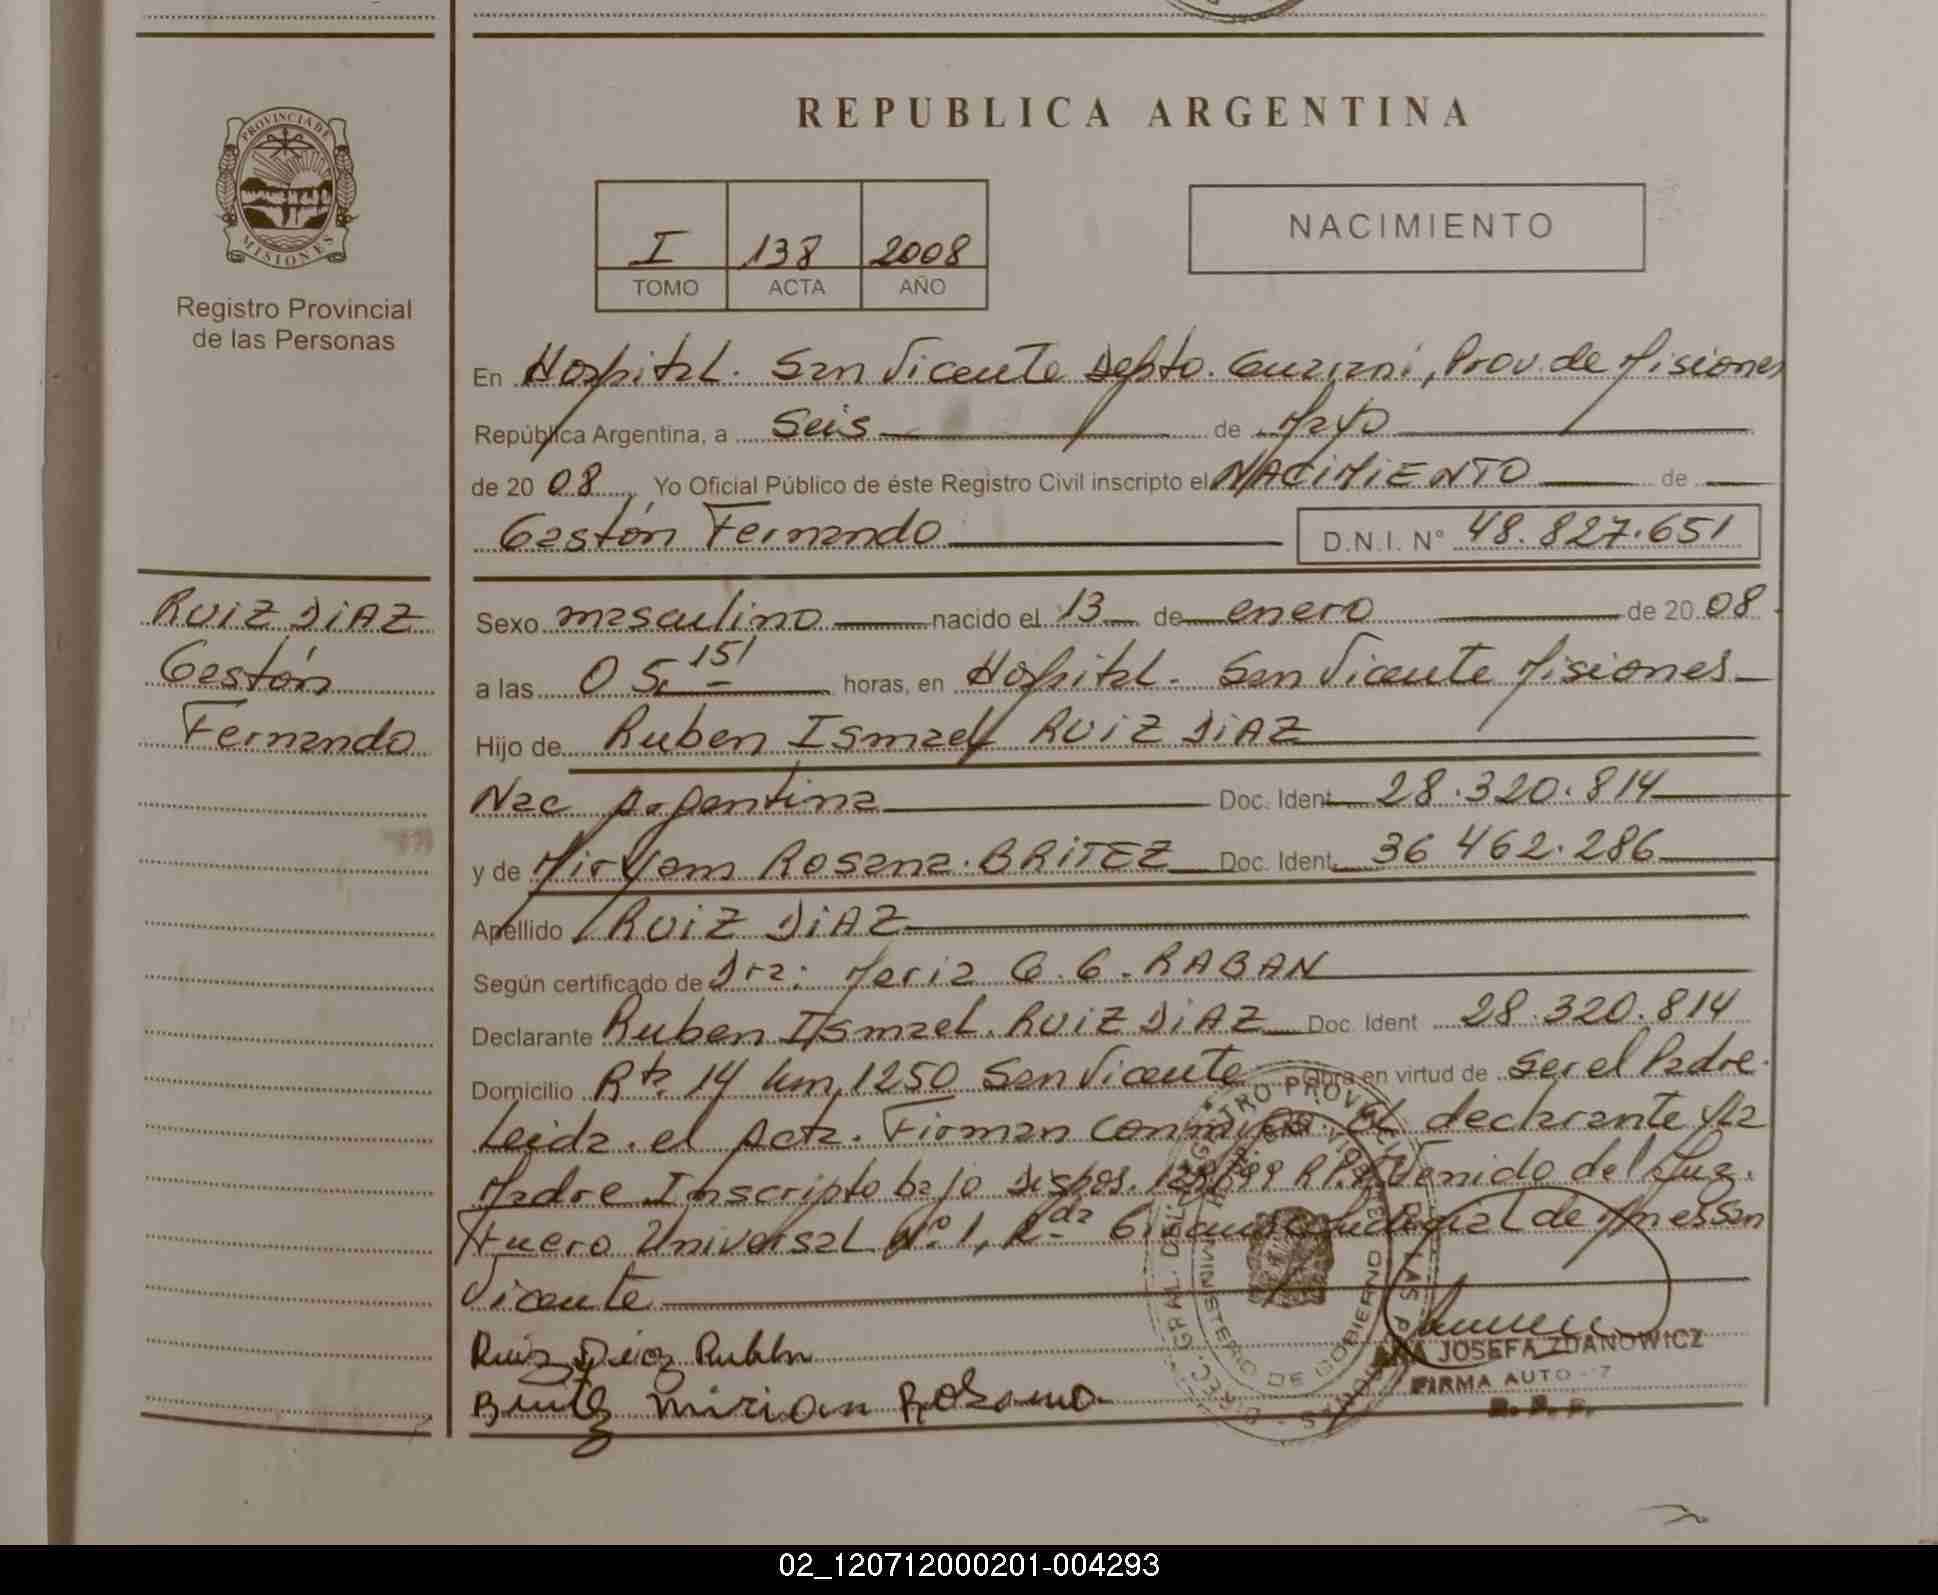 REPUBLICA ARGENTINA
PROVINCIA DE
MISIONES
Registro Provincial
de las Personas
I 138 2008
TOMO ACTA AÑO
NACIMIENTO
En Hospital. San Vicente Depto. Guarani, Prov. de Misiones
República Argentina, a Seis de Mayo
de 2008, Yo Oficial Público de éste Registro Civil inscripto el NACIMIENTO de
Gastón Fernando D.N.I. N° 48.827.651
RUIZ DIAZ
Gastón
Fernando
Sexo masculino nacido el 13 de enero de 2008.
a las 05,15' horas, en Hospital. San Vicente Misiones
Hijo de Ruben Ismael RUIZ DIAZ
Nac Argentina Doc. Ident. 28.320.814
y de Miryam Rosana. BRITEZ Doc. Ident. 36 462.286
Apellido RUIZ DIAZ
Según certificado de Dra: Maria G. G. RABAN
Declarante Ruben Ismael. RUIZ DIAZ Doc. Ident 28.320.814
Domicilio Rta 14 km, 1250 San Vicente Obra en virtud de ser el Padre.
Leida. el Acta. Firman conmigo. el declarante y la
Madre Inscripto bajo Dispos. R.P.P. Venido del Juz.
Fuero Universal N° 1, 2da Judicial de Mnes San
Vicente
Ruiz Diaz Rubén
Britez Mirian Rosana
REGISTRO PROVINCIAL DE LAS PERSONAS
MINISTERIO DE GOBIERNO
ANA JOSEFA ZDANOWICZ
FIRMA AUTO
R. P. P.
02_120712000201-004293